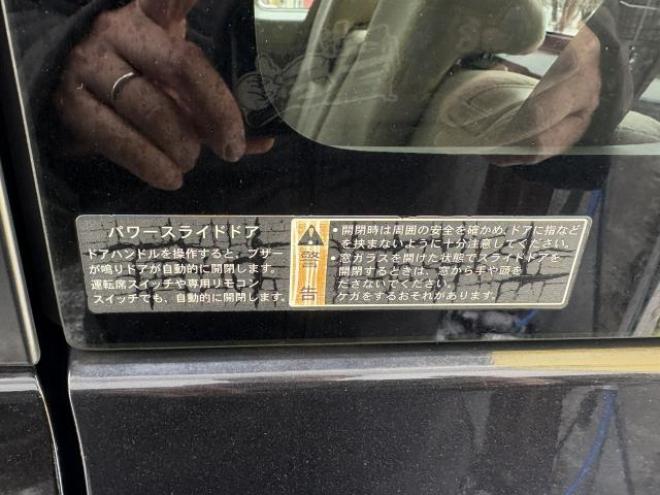 パワースライドドア
ドアハンドルを操作すると、ブザー
が鳴りドアが自動的に開閉します。
運転席スイッチや専用リモコン
スイッチでも、自動的に開閉します。
警告
・開閉時は周囲の安全を確かめ、ドアに指など
を挟まないように十分注意してください。
・窓ガラスを開けた状態でスライドドアを
開閉するときは、窓から手や頭を
ださないでください。
ケガをするおそれがあります。